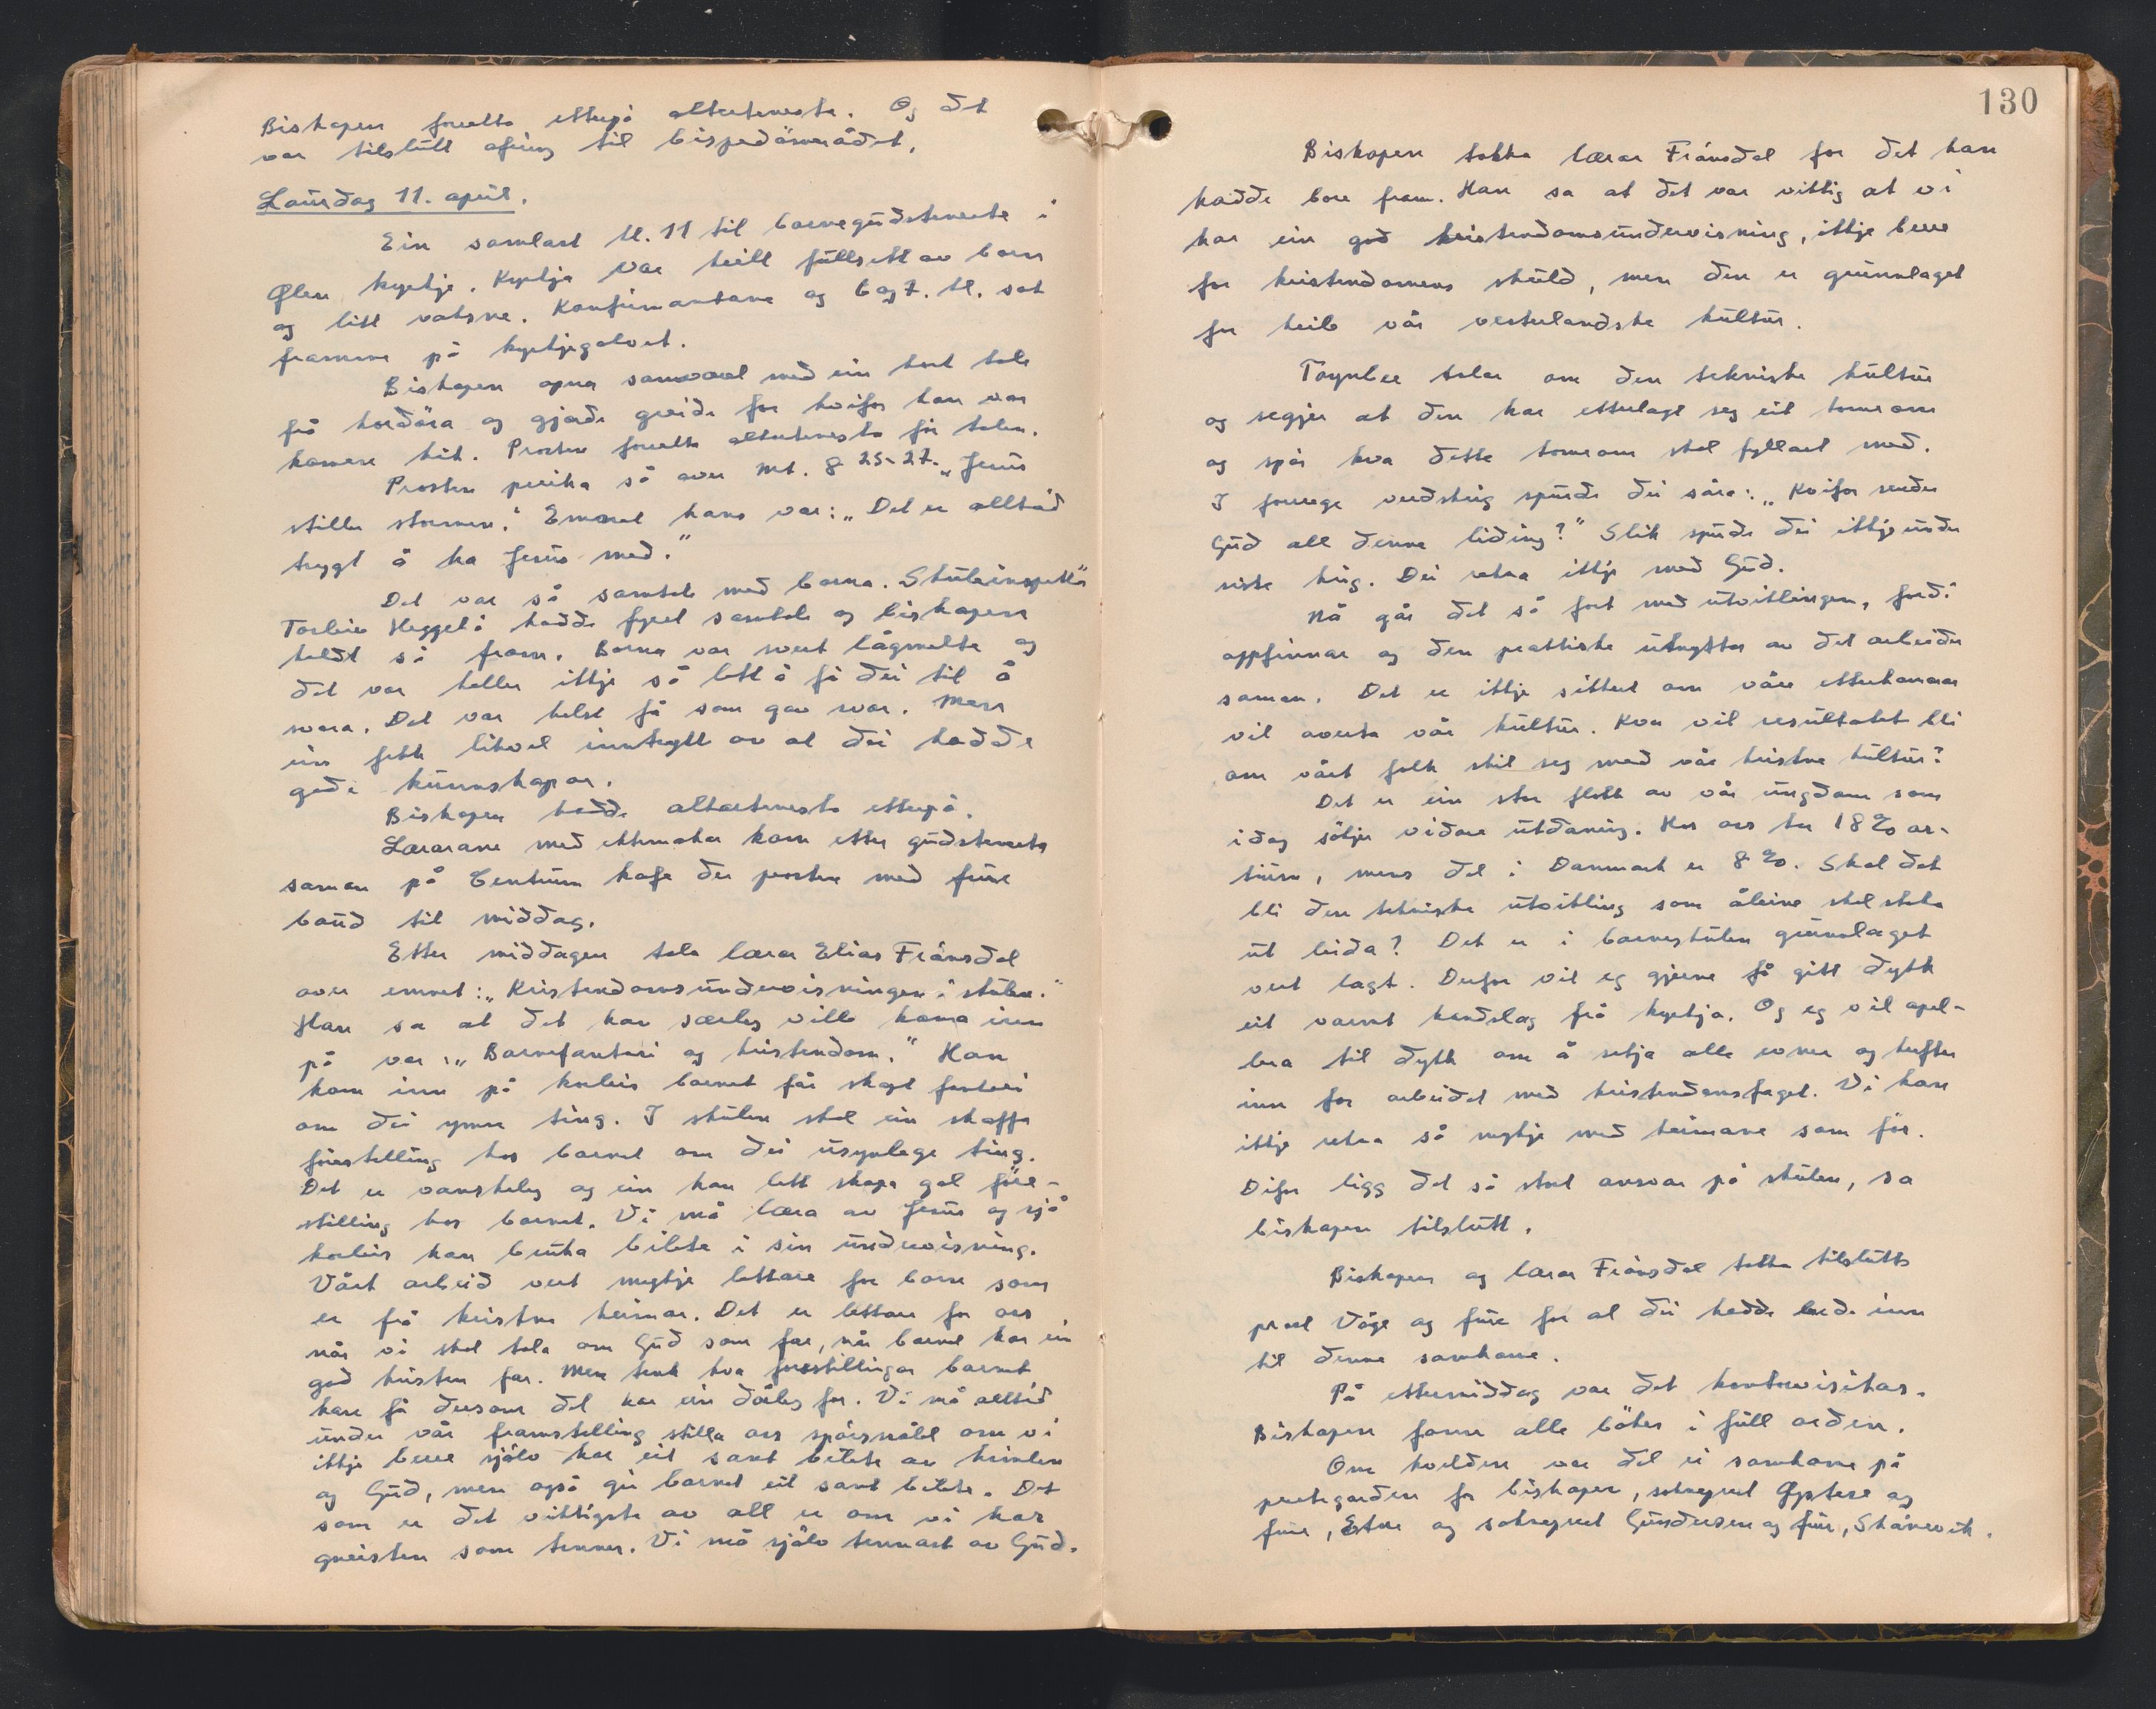 Biskopen forretta etterpå altarteneste. Og det
var tilslutt ofring til bispedømerådet.
Laurdag 11. april.
Ein samlast kl. 11 til barnegudsteneste i
Ølen kyrkje. Kyrkja var heilt fullsett av born
og litt vaksne. Konfirmantane og 6 og 7. kl. sat
framme på kyrkjegolvet.
Biskopen opna samværet med ein kort tale
frå kordöra og gjorde greide for kvifor han var
komen hit. Prosten forretta altarteneste för talen.
Prosten preika så over Mt. 8 25-27. „Jesus
stiller stormen." Emnet hans var: „Det er alltid
trygt å ha Jesus med."
Det var så samtale med borna. Skuleinspektör
Torleiv Heggelö hadde fyrst samtale og biskopen
heldt så fram. Borna var svert lågmelte og
det var heller ikkje så lett å få dei til å
svara. Det var helst få som gav svar. Men
ein fekk likvel inntrykk av at dei hadde
gode kunnskapar.
Biskopen hadde altarteneste etterpå.
Lærarane med ektemakar kom etter gudstenesta
saman på Centrum kafe der prosten med frue
baud til middag.
Etter middagen tala lærar Elias Frånsdal
over emnet: „Kristendomsundervisningen i skulen."
Han sa at det han særleg ville koma inn
på var: „Barnefantasi og kristendom." Han
kom inn på korleis barnet får skapt fantasi
om dei ymse ting. I skulen skal ein skaffe
förestelling hos barnet om dei usynlege ting.
Det er vanskeleg og ein kan lett skapa gal före-
stilling hos barnet. Vi må læra av Jesus og sjå
korleis han bruka bilete i sin undervisning.
Vårt arbeid vert mykje lettare for born som
er frå kristne heimar. Det er lettare for oss
når vi skal tala om Gud som far, når barnet har ein
god kristen far. Men tenk kva forestillingar barnet
kan få dersom det har ein dårleg far. Vi må alltid
under vår framstelling stilla oss spörsmålet om vi
ikkje berre sjölv har eit sant bilete av himlen
og Gud, men også gir barnet eit sant bilete. Det
som er det viktigste av alt er om vi har
gneisten som tenner. Vi må sjölv tennast av Gud.
130
Biskopen takka lærar Frånsdal for det han
hadde bore fram. Han sa at det var viktig at vi
har ein god kristendomsundervisning, ikkje berre
for kristendomens skuld, men den er grunnlaget
for heile vår vesterlandske kultur.
Toynbee talar om den tekniske kultur
og segjer at den har etterlagt seg eit tomrom
og spör kva dette tomrom skal fyllast med.
I forrege verdskrig spurde dei såra: „Kvifor sender
Gud all denne liding?" Slik spurde dei ikkje under
siste krig. Dei rekna ikkje med Gud.
Nå går det så fort med utviklingen, fordi
oppfinnar og den praktiske utnyttar av det arbeider
saman. Det er ikkje sikkert om våre etterkomarar
vil overta vår kultur. Kva vil resultatet bli
om vårt folk skil seg med vår kristne kultur?
Det er ein stor flokk av vår ungdom som
idag sökjer vidare utdaning. Hos oss tar 18% ar-
tium, mens det i Danmark er 8%. Skal det
bli den tekniske utvikling som åleine skal staka
ut leida? Det er i barneskulen grunnlaget
vert lagt. Derfor vil eg gjerne få gitt dykk
eit varmt handslag frå kyrkja. Og eg vil apel-
lera til dykk om å setja alle evner og krefter
inn for arbeidet med kristendomsfaget. Vi kan
ikkje rekna så mykje med heimane som för.
Difor ligg det så stort ansvar på skulen, sa
biskopen tilslutt.
Biskopen og lærar Frånsdal takka tilslutt
prost Våge og frue for at dei hadde bede inn
til denne samkome.
På ettermiddag var det kontorvisitas.
Biskopen fann alle böker i full orden.
Om kvelden var det ei samkome på
prestegarden for biskopen, sokneprest Øystese og
frue, Etne og sokneprest Gundersen og frue, Skånevik.